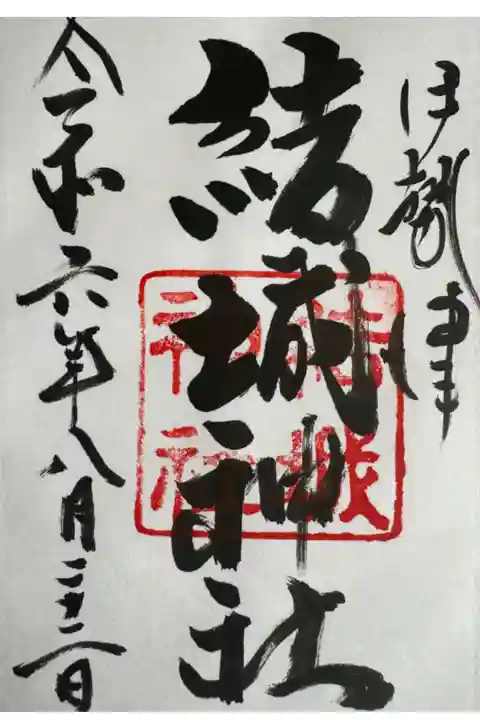 伊勢津
結城神社
令和六年八月二十二日
結城
神社